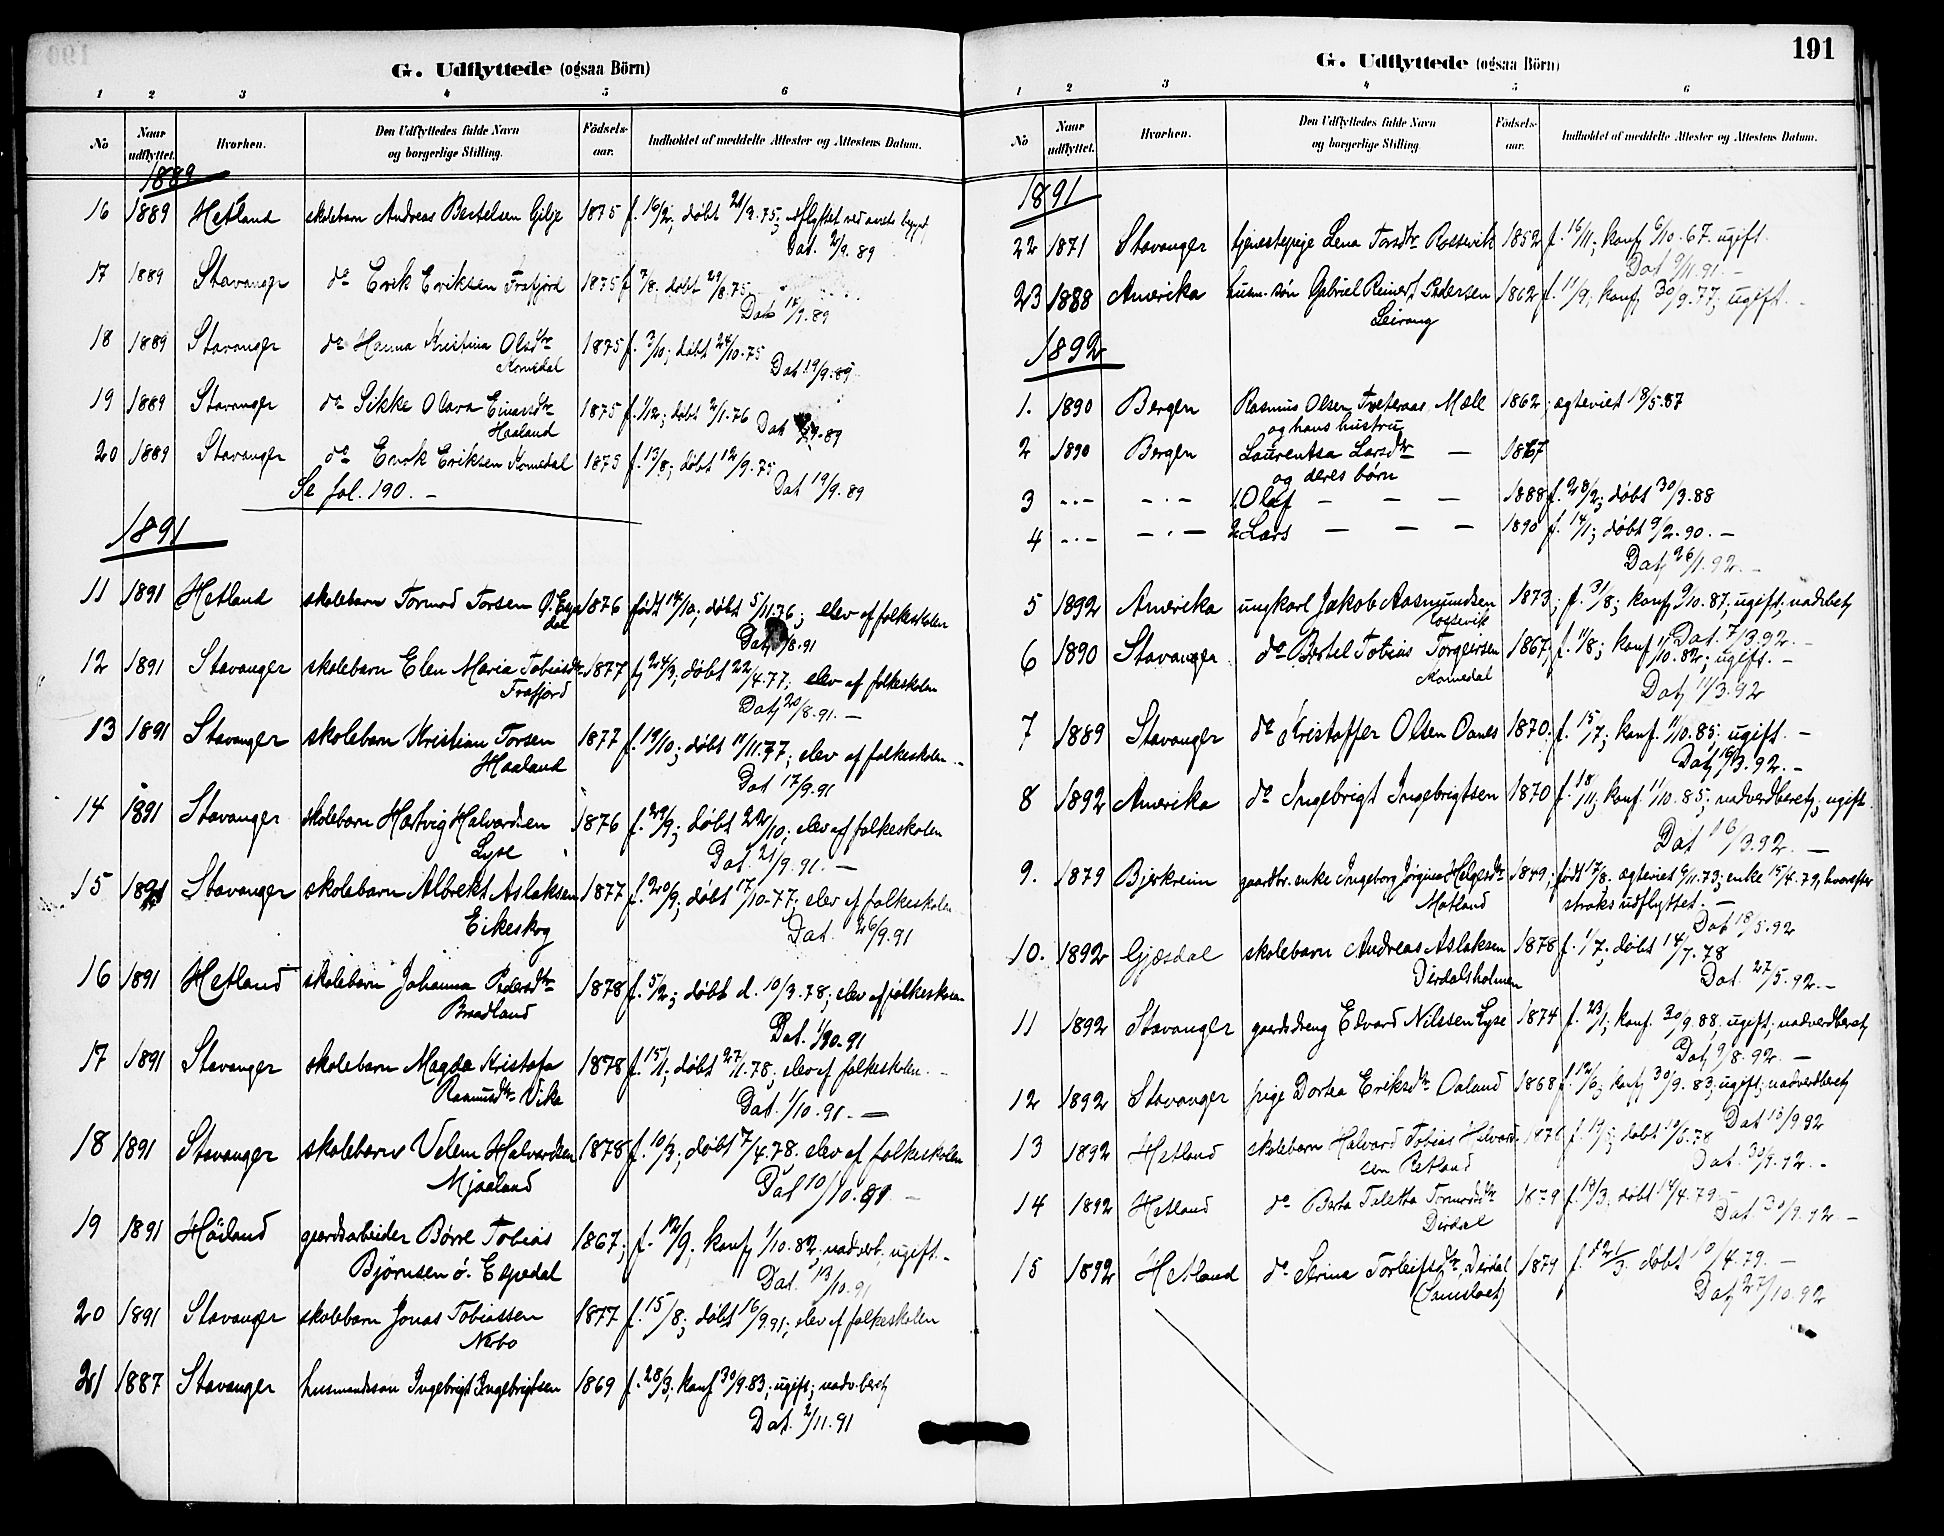 G. Udflyttede (ogsaa Börn)
1 2 3 4 5 6
No Naar udflyttet. Hvorhen. Den Udflyttedes fulde Navn og borgerlige Stilling. Födsels-aar. Indholdet af meddelte Attester og Attestens Datum.
1889
16 1889 Hetland skolebarn Andreas Bertelsen Gilje 1875 f. 16/2; døbt 21/3.75; udflyttet ved aarets
Dat. 2/9.89
17 1889 Stavanger do Erik Eriksen Frafjord 1875 f. 7/8; døbt 29/8.75
Dat 17/9.89
18 1889 Stavanger do Hanna Kristina Olsdtr 1875 f. 3/10; døbt 24/10.75
Komedal Dat 19/9.89
19 1889 Stavanger do Sikke Olava Einarsdtr 1875 f. 1/12; døbt 2/1.76
Haaland Dat 9.89
20 1889 Stavanger do Enok Eriksen Komedal 1875 f. 13/8; døbt 12/9.75
Se fol. 190. – Dat 19/9.89
1891
11 1891 Hetland skolebarn Tormod Torsen Ø. Espe 1876 født 14/10; døbt 5/11.76; elev af folkeskolen
dal Dat /8.91
12 1891 Stavanger skolebarn Elen Maria Tobiasdtr 1877 f. 24/3; døbt 22/4.77; elev af folkeskolen
Frafjord Dat 20/8.91. –
13 1891 Stavanger skolebarn Kristian Torsen 1877 f. 19/10; døbt 11/11.77; elev af folkeskolen. –
Haaland Dat 17/9.91
14 1891 Stavanger skolebarn Hartvig Halvardsen 1876 f. 29/9; døbt 22/10; elev af folkeskolen
Lyse Dat. 21/9.91. –
15 1891 Stavanger skolebarn Albrekt Aslaksen 1877 f. 20/9; døbt 17/10.77; elev af folkeskolen
Eikeskog Dat. 26/9.91
16 1891 Hetland skolebarn Johanna Pedersdtr 1878 f. 5/2; døbt d. 10/3.78; elev af folkeskolen
Braadland Dat. 1/10.91
17 1891 Stavanger skolebarn Magda Kristofa 1878 f. 15/1; døbt 27/1.78; elev af folkeskolen. –
Rasmusdtr Vika Dat. 1/10.91. –
18 1891 Stavanger skolebarn Velem Halvardsen 1878 f. 10/3; døbt 7/4.78. elev af folkeskolen
Mjaaland Dat 10/10.91 –
19 1891 Höiland gaardsarbeider Børre Tobias 1867; f. 12/9; konf. 1/10.82; nadverb. ugift. –
Bjørnsen ø. Espedal Dat. 13/10.91
20 1891 Stavanger skolebarn Jonas Tobiassen 1877 f. 15/8; døbt 16/9.91; elev af folkeskolen
Nerbo
21 1887 Stavanger husmandssøn Ingebrigt Ingebrigtsen 1869 f. 28/3; konf 30/9.83; ugift; nadv.beret
Dat. 2/11.91
191
G. Udflyttede (ogsaa Börn)
1 2 3 4 5 6
No Naar udflyttet. Hvorhen. Den Udflyttedes fulde Navn og borgerlige Stilling. Födsels-aar. Indholdet af meddelte Attester og Attestens Datum.
1891
22 1871 Stavanger tjenestepige Lena Torsdtr Rossevik 1852 f. 16/11; konf 6/10.67. ugift.
Dat 9/11.91. –
23 1888 Amerika husm. søn Gabriel Reinert Pedersen 1862 f. 11/9; konf 30/9.77; ugift. –
Leirang
1892
1. 1890 Bergen Rasmus Olsen Tveteraas Mæle 1862; ægteviet 18/5.87
og hans hustru
2 1890 Bergen Laurentsa Larsdtr – 1867
og deres børn
3 –.– –.– 1. Olaf – – – 1888 f. 28/2; døbt 30/3.88
4 –.– –.– 2 Lars – – – 1890 f. 14/1; døbt 9/2.90. –
Dat 26/1.92. –
5 1892 Amerika ungkarl Jakob Aasmundsen 1873; f. 31/8; konf 9/10.87; ugift; nadvbet
Rossevik Dat. 7/3.92. –
6 1890 Stavanger do Bertel Tobias Torgeirsen 1867; f. 11/8; konf 1/10.82; ugift. –
Komedal Dat 11/3.92
7 1889 Stavanger do Kristoffer Olsen Oanes 1870. f. 15/7; konf. 11/10.85; ugift. –
Dat 16/3.92. –
8 1892 Amerika do Ingebrigt Ingebrigtsen 1870 f. 18/11; konf 11/10.85; nadverdberet; ugift.
Dat 16/3.92. –
9. 1879 Bjerkreim gaardbr. enke Ingeborg Jørgine Helgesdtr 1849; født 17/8. ægteviet 9/11.73; enke 15/4.79, hvorefter
Matland straks udflyttet. –
Dat 18/5.92
10. 1892 Gjæsdal skolebarn Andreas Aslaksen 1878 f. 1/7; døbt 14/7.78
Dirdalsholmen Dat. 27/5.92. –
11 1892 Stavanger gaardsdreng Edvard Nilssen Lyse 1874 f. 23/1; konf. 30/9.88, ugift; nadverdberet
Dat 9/8.92. –
12 1892 Stavanger pige Dortea Eriksdtr Oaland 1868 f. 12/6; konf 30/9.83; ugift; nadverdberet
Dat 13/9.92
13 1892 Hetland skolebarn Halvard Tobias Halvard- 1878 døbt 78
sen Østland Dat. 30/9.92. –
14 1892 Hetland do Berta Teletta Tormodsdtr 1879 f. 18/3. døbt 14/4.79 –
Dirdal Dat. 30/9.92 –
15 1892 Hetland do Serina Torleifsdtr, Dirdal 1879 f. 21/3. døbt 10/4.79. –
Dat 27/10.92